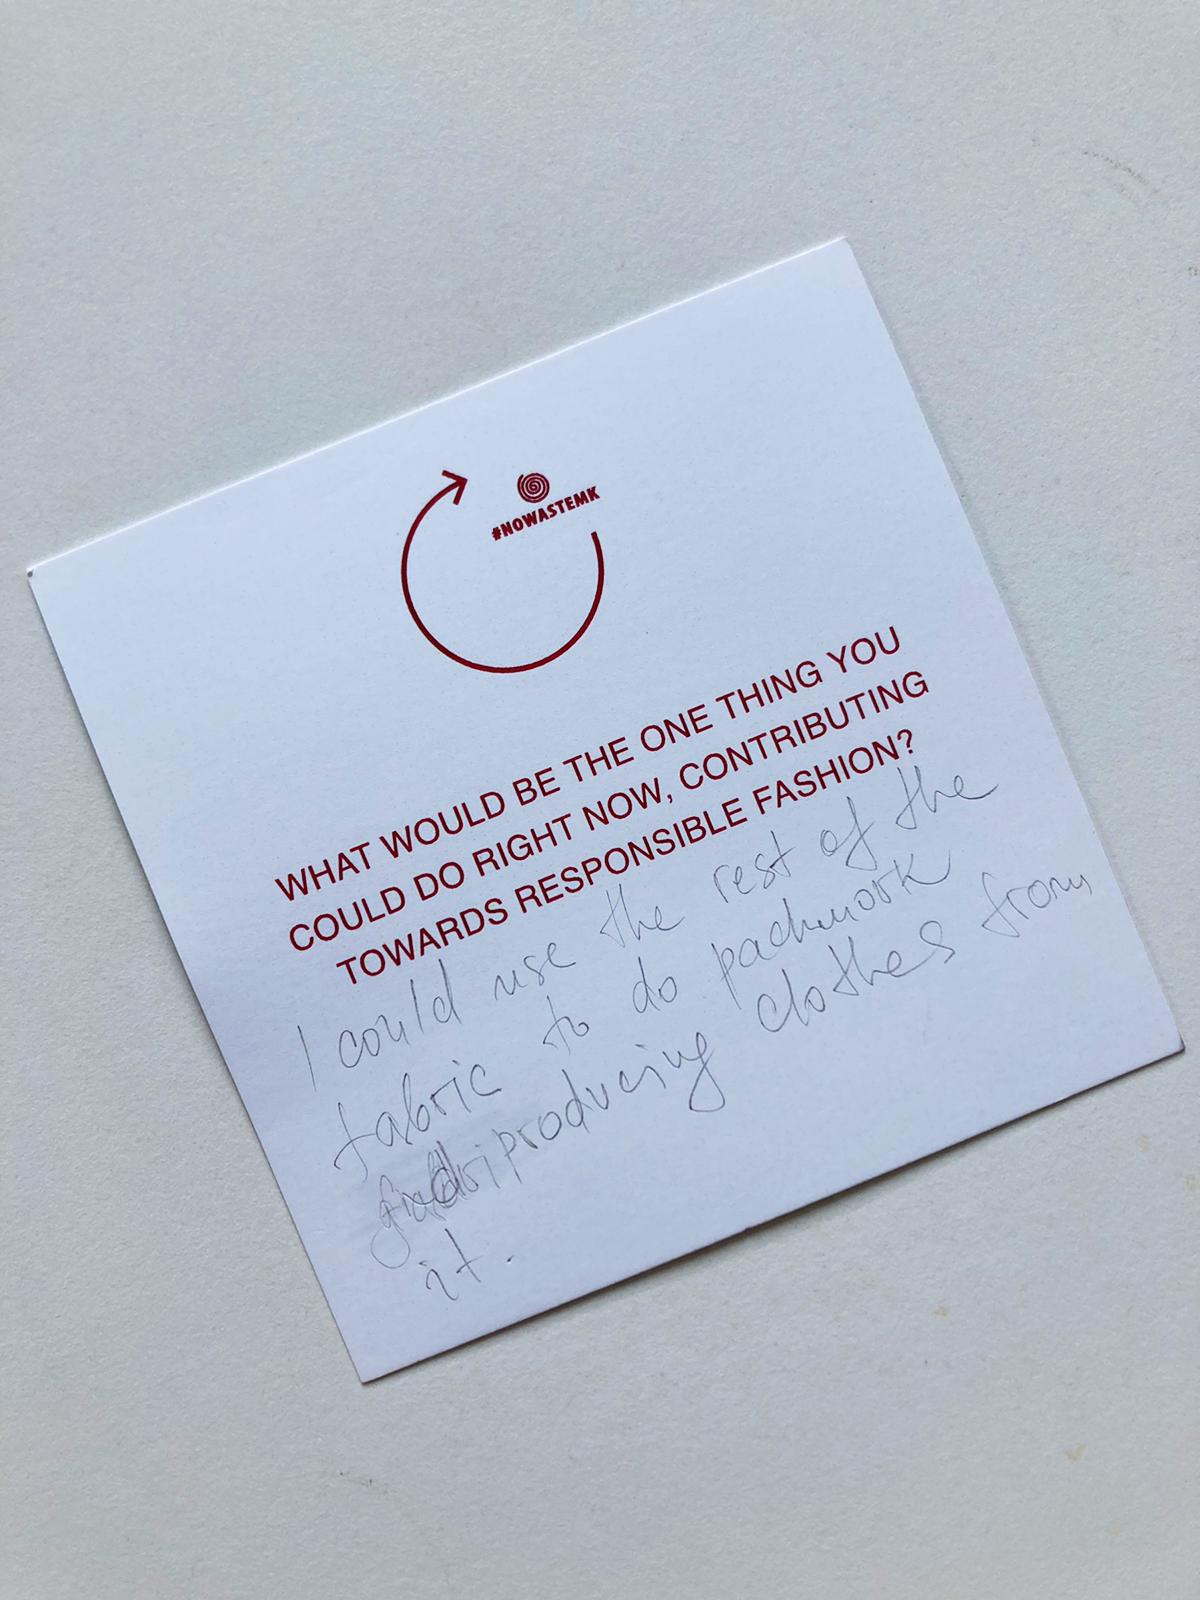 #NOWASTEMK
WHAT WOULD BE THE ONE THING YOU
COULD DO RIGHT NOW, CONTRIBUTING
TOWARDS RESPONSIBLE FASHION?
I could use the rest of the
fabric to do pachwork
riproducing clothes from
it.